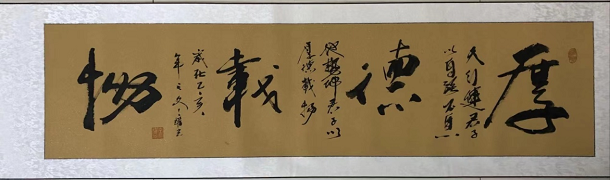 厚
天行健君子
以自强不息
德
地势坤君子以
厚德载物
載
岁在乙亥
年之冬
物